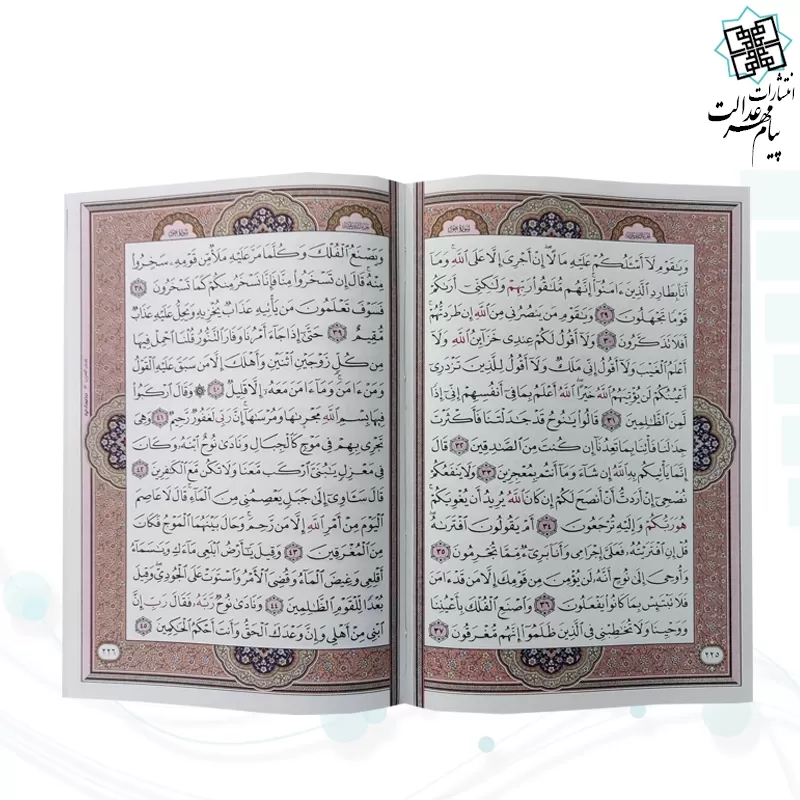 انتشارات
پیام مهر عدالت
وَيَٰقَوْمِ لَآ أَسْـَٔلُكُمْ عَلَيْهِ مَالًا إِنْ أَجْرِيَ إِلَّا عَلَى ٱللَّهِ وَمَآ
أَنَا۠ بِطَارِدِ ٱلَّذِينَ ءَامَنُوٓا۟ إِنَّهُم مُّلَٰقُوا۟ رَبِّهِمْ وَلَٰكِنِّيٓ أَرَىٰكُمْ
قَوْمًا تَجْهَلُونَ ٢٩ وَيَٰقَوْمِ مَن يَنصُرُنِي مِنَ ٱللَّهِ إِن طَرَدتُّهُمْ
أَفَلَا تَذَكَّرُونَ ٣٠ وَلَآ أَقُولُ لَكُمْ عِندِي خَزَآئِنُ ٱللَّهِ وَلَآ
أَعْلَمُ ٱلْغَيْبَ وَلَآ أَقُولُ إِنِّي مَلَكٌ وَلَآ أَقُولُ لِلَّذِينَ تَزْدَرِيٓ
أَعْيُنُكُمْ لَن يُؤْتِيَهُمُ ٱللَّهُ خَيْرًا ٱللَّهُ أَعْلَمُ بِمَا فِيٓ أَنفُسِهِمْ إِنِّيٓ إِذًا
لَّمِنَ ٱلظَّٰلِمِينَ ٣١ قَالُوا۟ يَٰنُوحُ قَدْ جَٰدَلْتَنَا فَأَكْثَرْتَ
جِدَٰلَنَا فَأْتِنَا بِمَا تَعِدُنَآ إِن كُنتَ مِنَ ٱلصَّٰدِقِينَ ٣٢ قَالَ
إِنَّمَا يَأْتِيكُم بِهِ ٱللَّهُ إِن شَآءَ وَمَآ أَنتُم بِمُعْجِزِينَ ٣٣ وَلَا يَنفَعُكُمْ
نُصْحِيٓ إِنْ أَرَدتُّ أَنْ أَنصَحَ لَكُمْ إِن كَانَ ٱللَّهُ يُرِيدُ أَن يُغْوِيَكُمْ
هُوَ رَبُّكُمْ وَإِلَيْهِ تُرْجَعُونَ ٣٤ أَمْ يَقُولُونَ ٱفْتَرَىٰهُ
قُلْ إِنِ ٱفْتَرَيْتُهُۥ فَعَلَيَّ إِجْرَامِي وَأَنَا۠ بَرِيٓءٌ مِّمَّا تُجْرِمُونَ ٣٥
وَأُوحِيَ إِلَىٰ نُوحٍ أَنَّهُۥ لَن يُؤْمِنَ مِن قَوْمِكَ إِلَّا مَن قَدْ ءَامَنَ
فَلَا تَبْتَئِسْ بِمَا كَانُوا۟ يَفْعَلُونَ ٣٦ وَٱصْنَعِ ٱلْفُلْكَ بِأَعْيُنِنَا
وَوَحْيِنَا وَلَا تُخَٰطِبْنِي فِي ٱلَّذِينَ ظَلَمُوٓا۟ إِنَّهُم مُّغْرَقُونَ ٣٧
٢٢٥
وَيَصْنَعُ ٱلْفُلْكَ وَكُلَّمَا مَرَّ عَلَيْهِ مَلَأٌ مِّن قَوْمِهِۦ سَخِرُوا۟
مِنْهُ قَالَ إِن تَسْخَرُوا۟ مِنَّا فَإِنَّا نَسْخَرُ مِنكُمْ كَمَا تَسْخَرُونَ ٣٨
فَسَوْفَ تَعْلَمُونَ مَن يَأْتِيهِ عَذَابٌ يُخْزِيهِ وَيَحِلُّ عَلَيْهِ عَذَابٌ
مُّقِيمٌ ٣٩ حَتَّىٰٓ إِذَا جَآءَ أَمْرُنَا وَفَارَ ٱلتَّنُّورُ قُلْنَا ٱحْمِلْ فِيهَا
مِن كُلٍّ زَوْجَيْنِ ٱثْنَيْنِ وَأَهْلَكَ إِلَّا مَن سَبَقَ عَلَيْهِ ٱلْقَوْلُ
وَمَنْ ءَامَنَ وَمَآ ءَامَنَ مَعَهُۥٓ إِلَّا قَلِيلٌ ٤٠ وَقَالَ ٱرْكَبُوا۟
فِيهَا بِسْمِ ٱللَّهِ مَجْر۪ىٰهَا وَمُرْسَىٰهَآ إِنَّ رَبِّي لَغَفُورٌ رَّحِيمٌ ٤١ وَهِيَ
تَجْرِي بِهِمْ فِي مَوْجٍ كَٱلْجِبَالِ وَنَادَىٰ نُوحٌ ٱبْنَهُۥ وَكَانَ
فِي مَعْزِلٍ يَٰبُنَيَّ ٱرْكَب مَّعَنَا وَلَا تَكُن مَّعَ ٱلْكَٰفِرِينَ ٤٢
قَالَ سَـَٔاوِيٓ إِلَىٰ جَبَلٍ يَعْصِمُنِي مِنَ ٱلْمَآءِ قَالَ لَا عَاصِمَ
ٱلْيَوْمَ مِنْ أَمْرِ ٱللَّهِ إِلَّا مَن رَّحِمَ وَحَالَ بَيْنَهُمَا ٱلْمَوْجُ فَكَانَ
مِنَ ٱلْمُغْرَقِينَ ٤٣ وَقِيلَ يَٰٓأَرْضُ ٱبْلَعِي مَآءَكِ وَيَٰسَمَآءُ
أَقْلِعِي وَغِيضَ ٱلْمَآءُ وَقُضِيَ ٱلْأَمْرُ وَٱسْتَوَتْ عَلَى ٱلْجُودِيِّ وَقِيلَ
بُعْدًا لِّلْقَوْمِ ٱلظَّٰلِمِينَ ٤٤ وَنَادَىٰ نُوحٌ رَّبَّهُۥ فَقَالَ رَبِّ إِنَّ
ٱبْنِي مِنْ أَهْلِي وَإِنَّ وَعْدَكَ ٱلْحَقُّ وَأَنتَ أَحْكَمُ ٱلْحَٰكِمِينَ ٤٥
٢٢٦